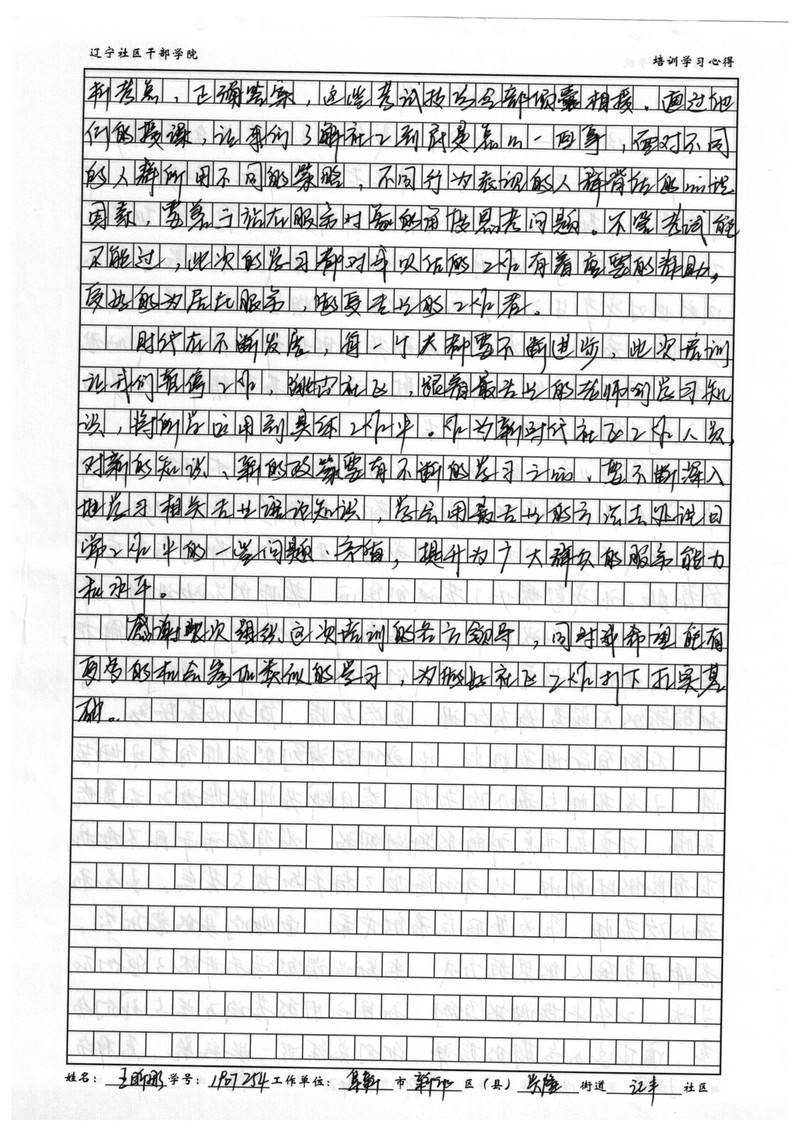 辽宁社区干部学院
培训学习心得
析考点,正确答案,这些考试技巧全部倾囊相授。通过他
们的授课,让我们了解社工到底是怎么一回事,面对不同
的人群所用不同的策略,不同行为表现的人群背后的心理
因素,要善于站在服务对象的角度思考问题。不管考试能
不能过,此次的学习都对年以后的工作有着重要的帮助,
更好的为居民服务,做更专业的工作者。
时代在不断发展,每个人都要不断进步,此次培训
让我们暂停工作,跳出社区,跟着最专业的老师们学习知
识,将所学应用到实际工作中。作为新时代社区工作人员,
对新的知识、新的政策要有不断的学习之心,要不断深入
地学习相关专业理论知识,学会用最专业的方法去处理日
常工作中的一些问题,升华,提升为广大群众的服务能力
和水平。
感谢此次组织这次培训的各方领导,同时我希望能有
更多的机会参加类似的学习,为做好社区工作打下扎实基
础。
姓名: 王昕彤 学号: 1907254 工作单位: 阜新 市 新邱 区(县) 街道 社区